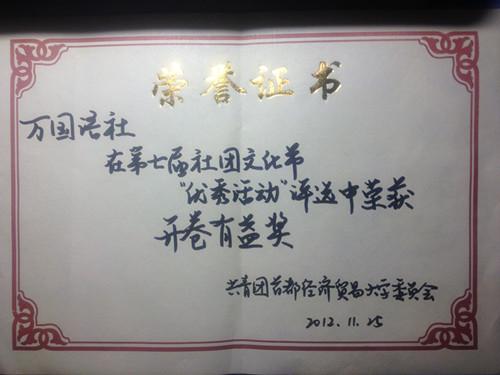 荣誉证书
万国语社
在第七届社团文化节
“优秀活动”评选中荣获
开卷有益奖
共青团首都经济贸易大学委员会
2012.11.25